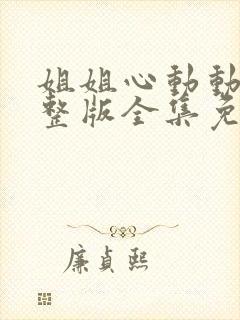 姐姐心動動
整版全集免
廉貞熙